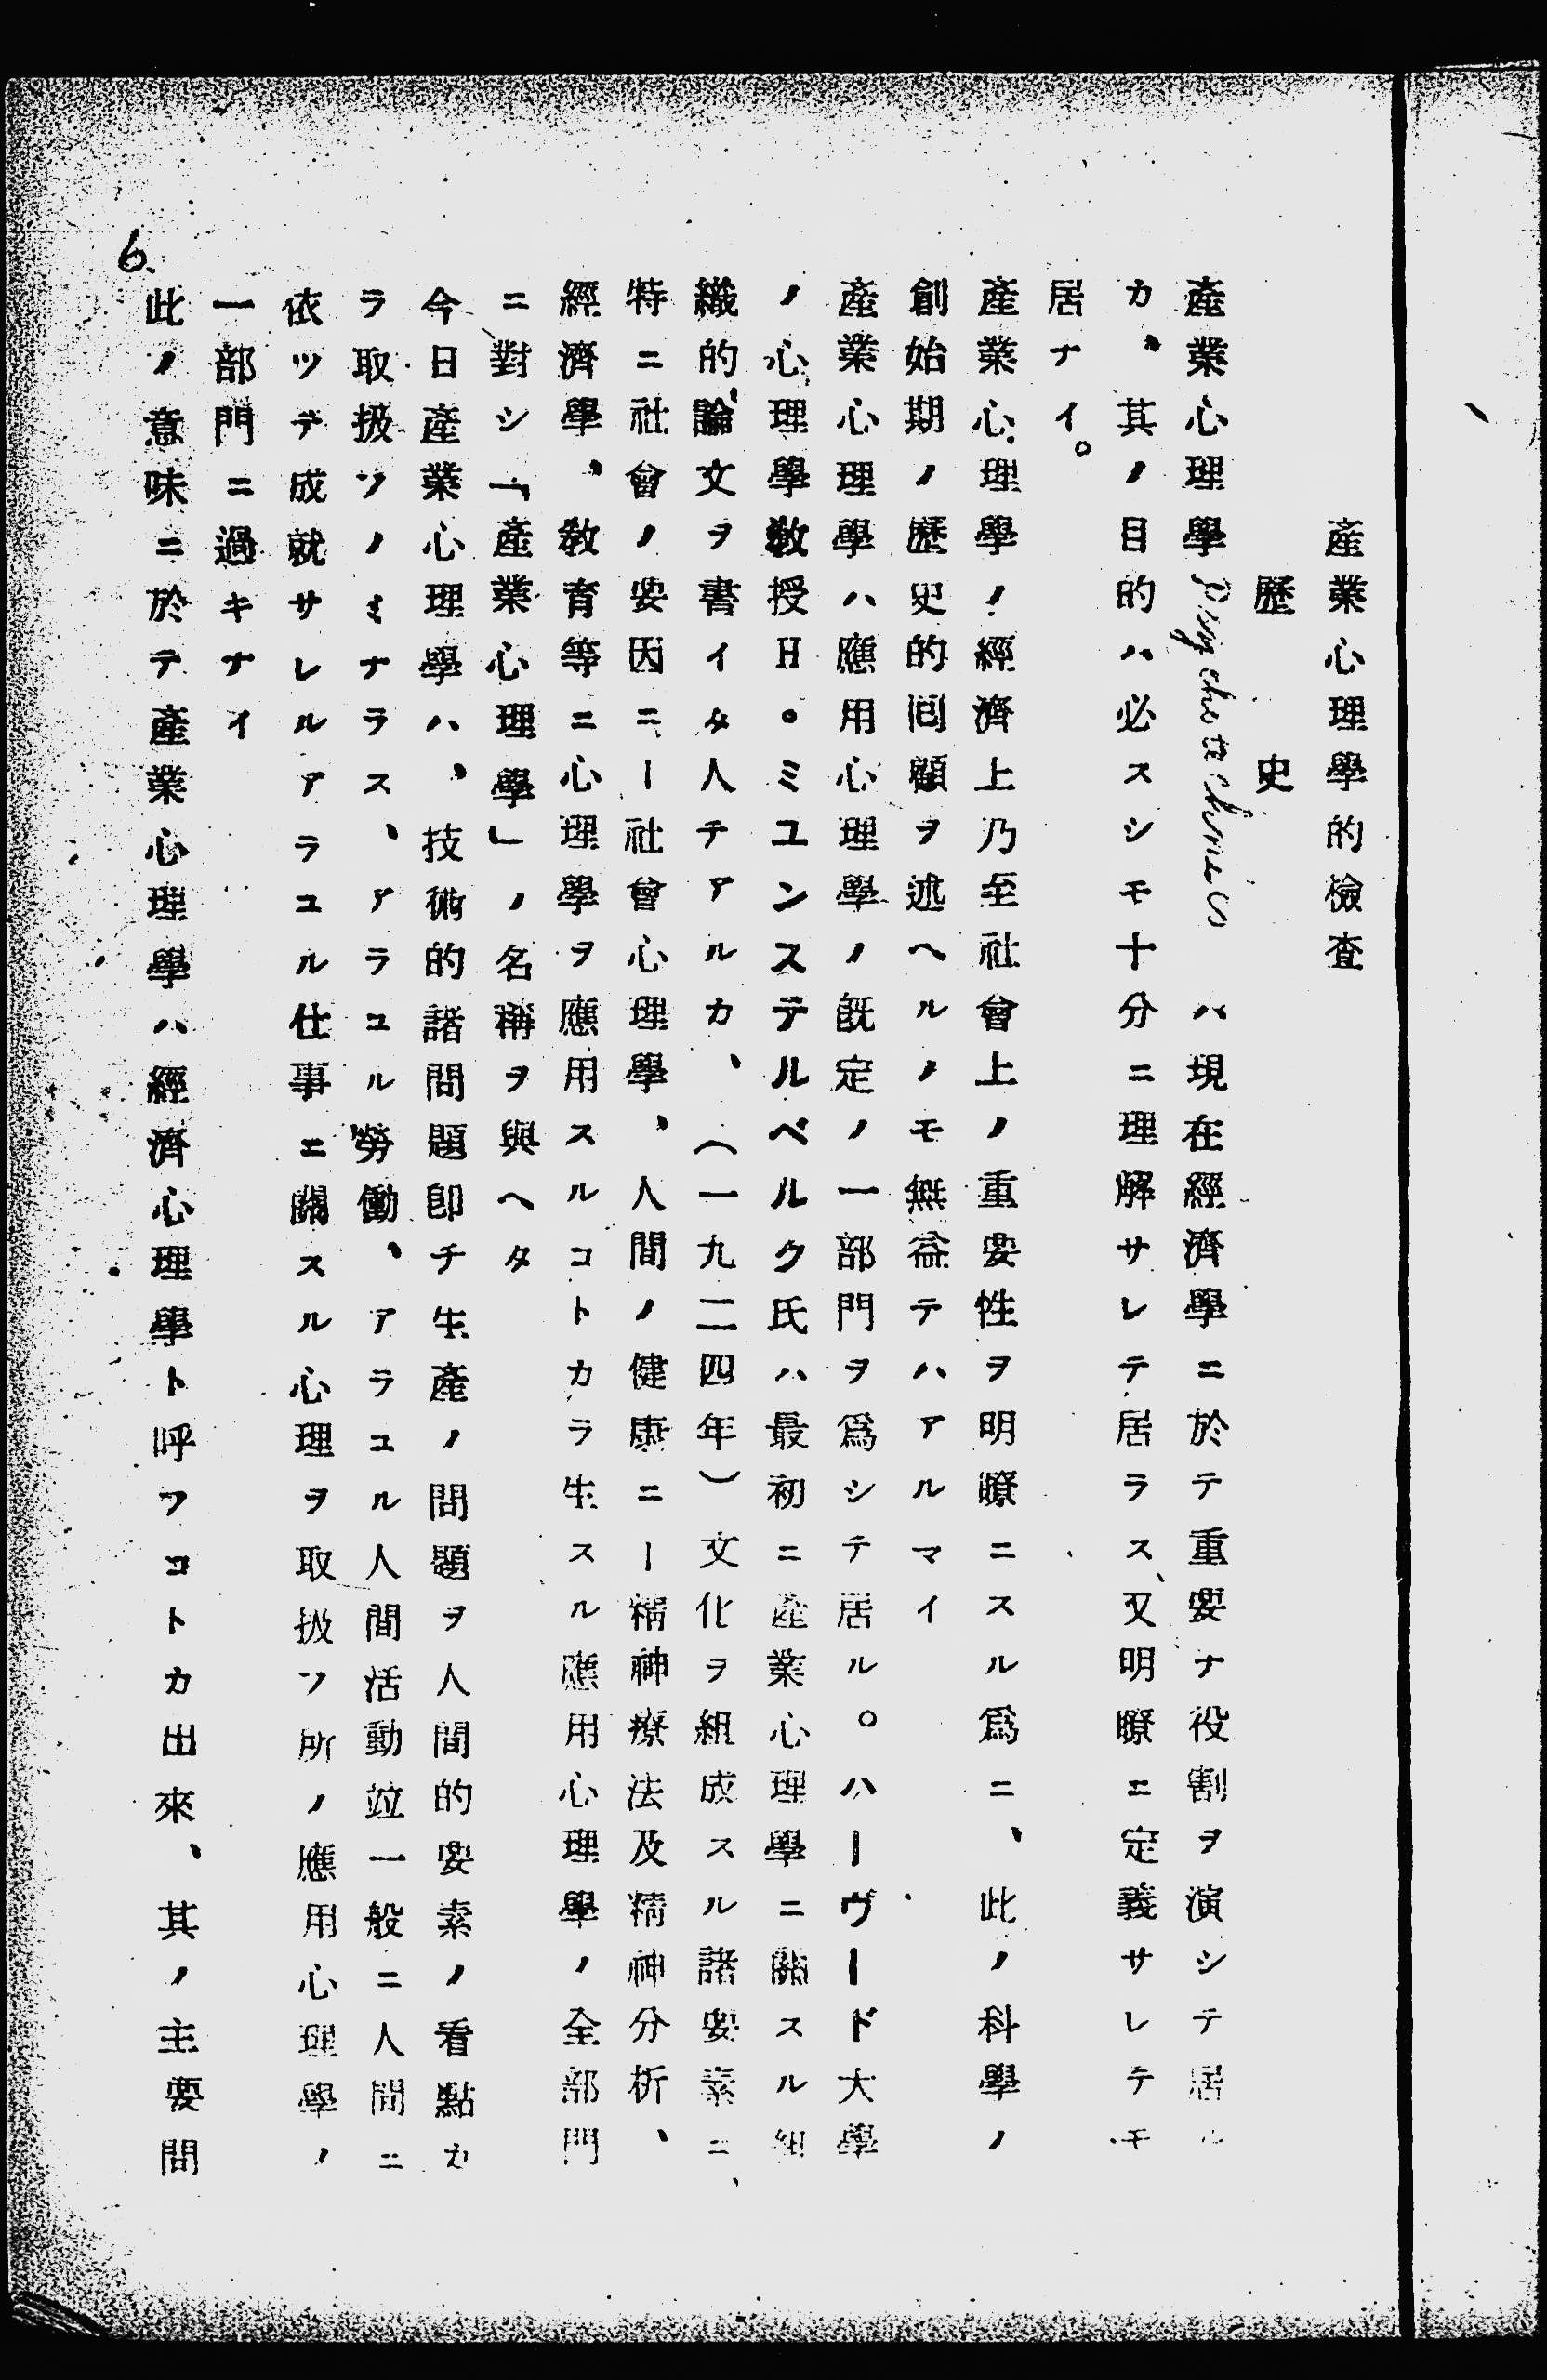 產業心理學的檢査
歷史
產業心理學 Psychotechnics ハ現在經濟學ニ於テ重要ナ役割ヲ演シテ居ル
カ、其ノ目的ハ必スシモ十分ニ理解サレテ居ラス、又明瞭ニ定義サレテモ
居ナイ。
產業心理學ノ經濟上乃至社會上ノ重要性ヲ明瞭ニスル爲ニ、此ノ科學ノ
創始期ノ歷史的囘顧ヲ述ヘルノモ無益テハアルマイ
產業心理學ハ應用心理學ノ既定ノ一部門ヲ爲シテ居ル。ハーヴード大學
ノ心理學敎授H。ミユンステルベルク氏ハ最初ニ產業心理學ニ關スル組
織的論文ヲ書イタ人テアルカ、(一九二四年)文化ヲ組成スル諸要素ニ、
特ニ社會ノ要因ニー社會心理學、人間ノ健康ニー精神療法及精神分析、
經濟學、敎育等ニ心理學ヲ應用スルコトカラ生スル應用心理學ノ全部門
ニ對シ「產業心理學」ノ名稱ヲ與ヘタ
今日產業心理學ハ、技術的諸問題卽チ生產ノ問題ヲ人間的要素ノ看點カ
ラ取扱フノミナラス、アラユル勞働、アラユル人間活動竝一般ニ人間ニ
依ツテ成就サレルアラユル仕事ニ關スル心理ヲ取扱フ所ノ應用心理學ノ
一部門ニ過キナイ
此ノ意味ニ於テ產業心理學ハ經濟心理學ト呼フコトカ出來、其ノ主要問
6.